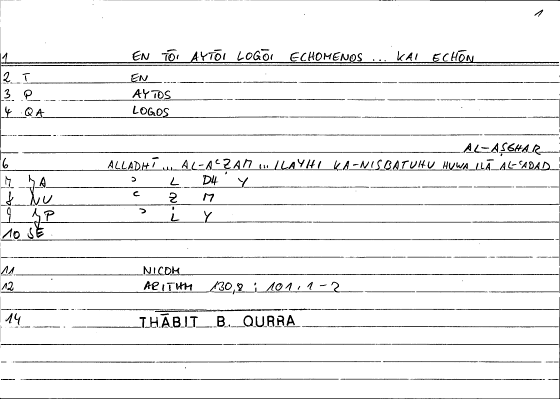 1
1 EN TŌI AYTŌI LOGŌI ECHOMENOS ... KAI ECHŌN
2 T EN
3 P AYTOS
4 QA LOGOS
AL-AṢGHAR
6 ALLADHĪ ... AL-AʿẒAM ... ILAYHI KA-NISBATUHU HUWA ILĀ AL-ʿADAD
7 A ʾ L DH Y
8 NU ʿ Ẓ M
9 P ʾ L Y
10 SE
11 NICOM
12 ARITHM 130,8 ; 101,1-2
14 THĀBIT B. QURRA